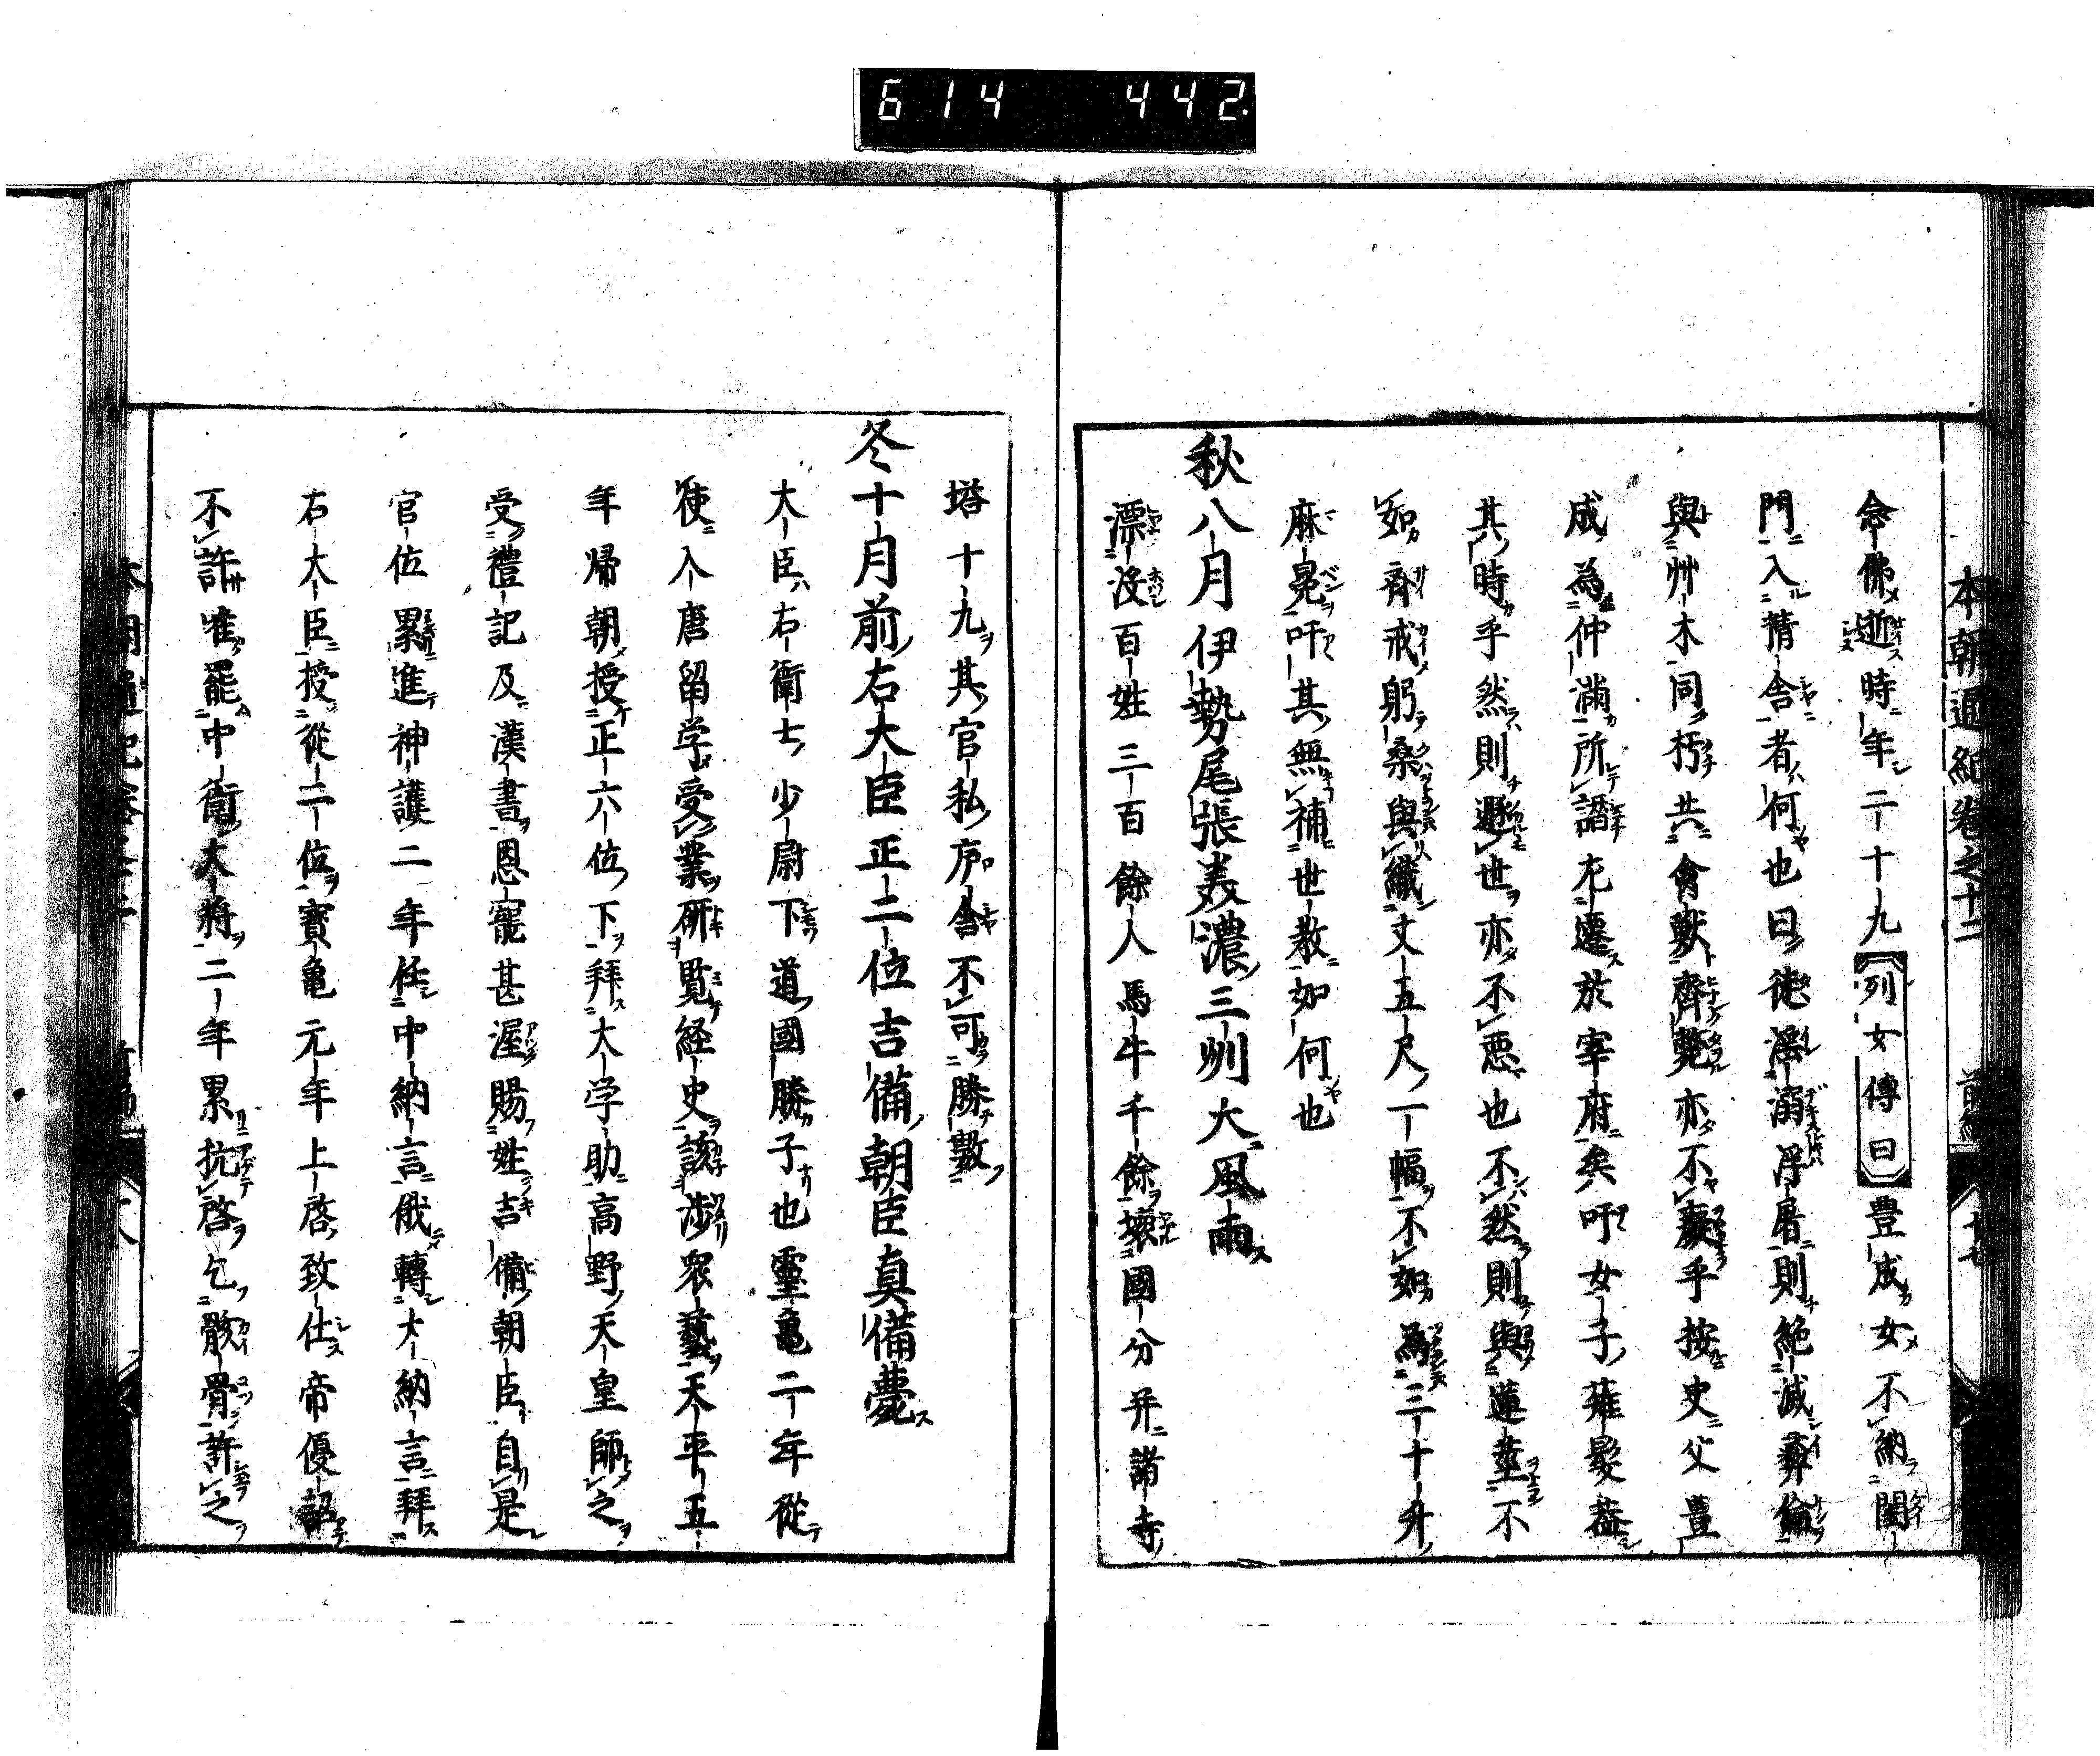 614 442
本朝通紀卷之十二 前編 十七
念佛逝時年二十九列女傳曰豊成女不納閨
門入精舍者何也曰徒淫溺浮屠則絶滅彝倫
與艸木同朽共禽獸齊斃亦不哀乎按史父豊
成為仲滿所譖左遷於宰府矣吁女子薙髮蓋
其時乎然則遯世亦不惡也不然則與蓮莖不
如齊戒躬桑與織丈五尺一幅不如為三十升
麻冕吁其無補世教如何也
秋八月伊勢尾張美濃三州大風雨
漂沒百姓三百餘人馬牛千餘壞國分并諸寺
塔十九其官私庐舍不可勝數
冬十月前右大臣正二位吉備朝臣真備薨
大臣右衛士少尉下道國勝子也靈亀二年從
使入唐留学受業研覧経史該渉衆藝天平五
年帰朝授正六位下拜大学助高野天皇師之
受禮記及漢書恩寵甚渥賜姓吉備朝臣自是
官位累進神護二年任中納言俄轉大納言拜
右大臣授從二位寳亀元年上啓致仕帝優詔
不許唯罷中衛大将二年累抗啓乞骸骨許之